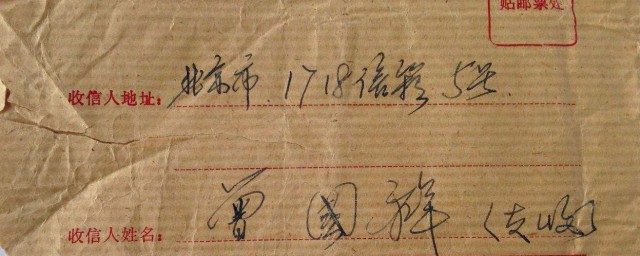 贴邮票处
收信人地址：北京市.1718信箱5号.
收信人姓名：曾國祥（支收）